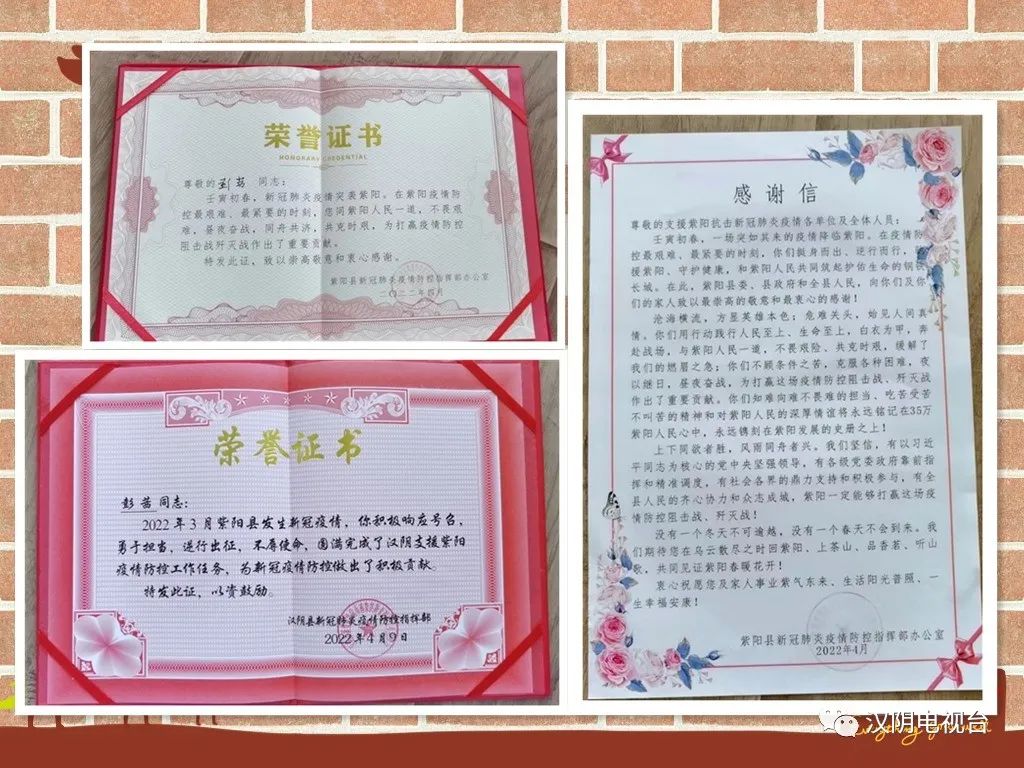 荣誉证书
HONORARY CREDENTIAL
尊敬的 同志：
壬寅初春，新冠肺炎疫情突袭紫阳。在紫阳疫情防
控最艰难、最紧要的时刻，您同紫阳人民一道，不畏艰
难，昼夜奋战，同舟共济，共克时艰，为打赢疫情防控
阻击战歼灭战作出了重要贡献。
特发此证，致以崇高敬意和衷心感谢。
紫阳县新冠肺炎疫情防控指挥部办公室
二〇二二年四月
荣誉证书
彭茜同志：
2022年3月紫阳县发生新冠疫情，你积极响应号召，
勇于担当，逆行出征，不辱使命，圆满完成了汉阴支援紫阳
疫情防控工作任务，为新冠疫情防控做出了积极贡献。
特发此证，以资鼓励。
汉阴县新冠肺炎疫情防控指挥部
2022年4月9日
感谢信
尊敬的支援紫阳抗击新冠肺炎疫情各单位及全体人员：
壬寅初春，一场突如其来的疫情降临紫阳。在疫情防
控最艰难、最紧要的时刻，你们挺身而出、逆行而行，
援紫阳、守护健康，和紫阳人民共同筑起护佑生命的钢铁
长城。在此，紫阳县委、县政府和全县人民，向你们及你
们的家人致以最崇高的敬意和最衷心的感谢！
沧海横流，方显英雄本色；危难关头，始见人间真
情。你们用行动践行人民至上、生命至上，白衣为甲，奔
赴战场，与紫阳人民一道，不畏艰险、共克时艰，缓解了
我们的燃眉之急；你们不顾条件之苦，克服各种困难，夜
以继日，昼夜奋战，为打赢这场疫情防控阻击战、歼灭战
作出了重要贡献。你们知难向难不畏难的担当、吃苦受苦
不叫苦的精神和对紫阳人民的深厚情谊将永远铭记在35万
紫阳人民心中，永远镌刻在紫阳发展的史册之上！
上下同欲者胜，风雨同舟者兴。我们坚信，有以习近
平同志为核心的党中央坚强领导，有各级党委政府靠前指
挥和精准调度，有社会各界的鼎力支持和积极参与，有全
县人民的齐心协力和众志成城，紫阳一定能够打赢这场疫
情防控阻击战、歼灭战！
没有一个冬天不可逾越，没有一个春天不会到来。我
们期待您在乌云散尽之时回紫阳、上茶山、品香茗、听山
歌，共同见证紫阳春暖花开！
衷心祝愿您及家人事业紫气东来、生活阳光普照、一
生幸福安康！
紫阳县新冠肺炎疫情防控指挥部办公室
2022年4月
汉阴电视台